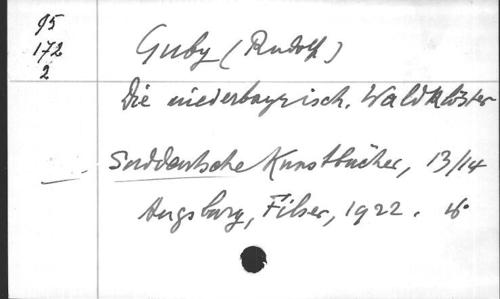 95
172
2
Guby (Rudolf)
Die niederbayrisch. Waldklöster
Süddeutsche Kunstbücher, 13/14
Augsburg, Filser, 1922.